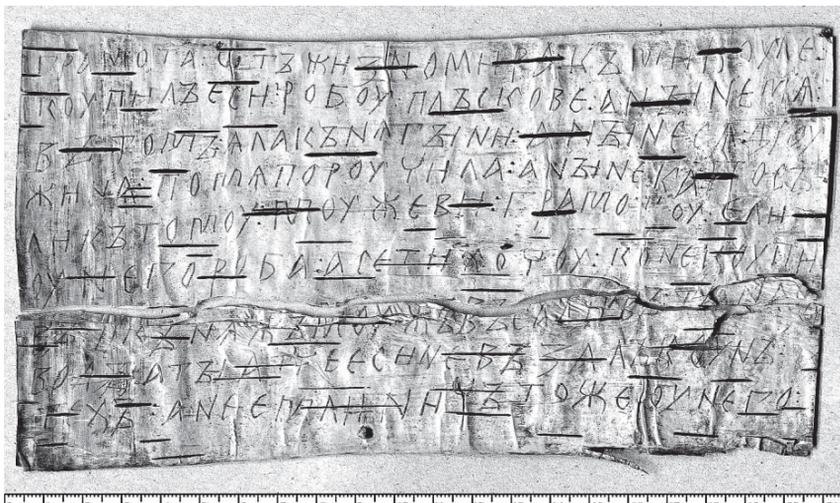 ГРАМОТА : ѠТЪ ЖИЗНОМИРА : КЪ МИКОУЛЕ :
КОУПИЛЪ ЕСИ : РОБОУ : ПЛЪСКОВЕ : А НЪІНЕ МѦ :
ВЪ ТОМЪ : ѦЛА КЪНѦГЪІНИ : А НЪІНЕ СѦ ДРОУ
ЖИНА : ПО МѦ ПОРОУЧИЛА : А НЪІНЕ КА : ПОСЪ
ЛИ КЪ ТОМОУ : МОУЖЕВИ : ГРАМОТОУ : ЕЛИ
ОУ НЕГО РОБА : А СЕ ТИ ХОЧОУ : КОНЕ КОУПИ
ВЪ : И КЪНѦЖЪ МОУЖЪ ВЪСА
ВОДЪІ : А ТЪІ АЧЕ ЕСИ НЕ ВЪЗАЛЪ КОУНЪ :
ТЕХЪ : А НЕ ЕМЛИ : НИЧЪТО ЖЕ ОУ НЕГО :